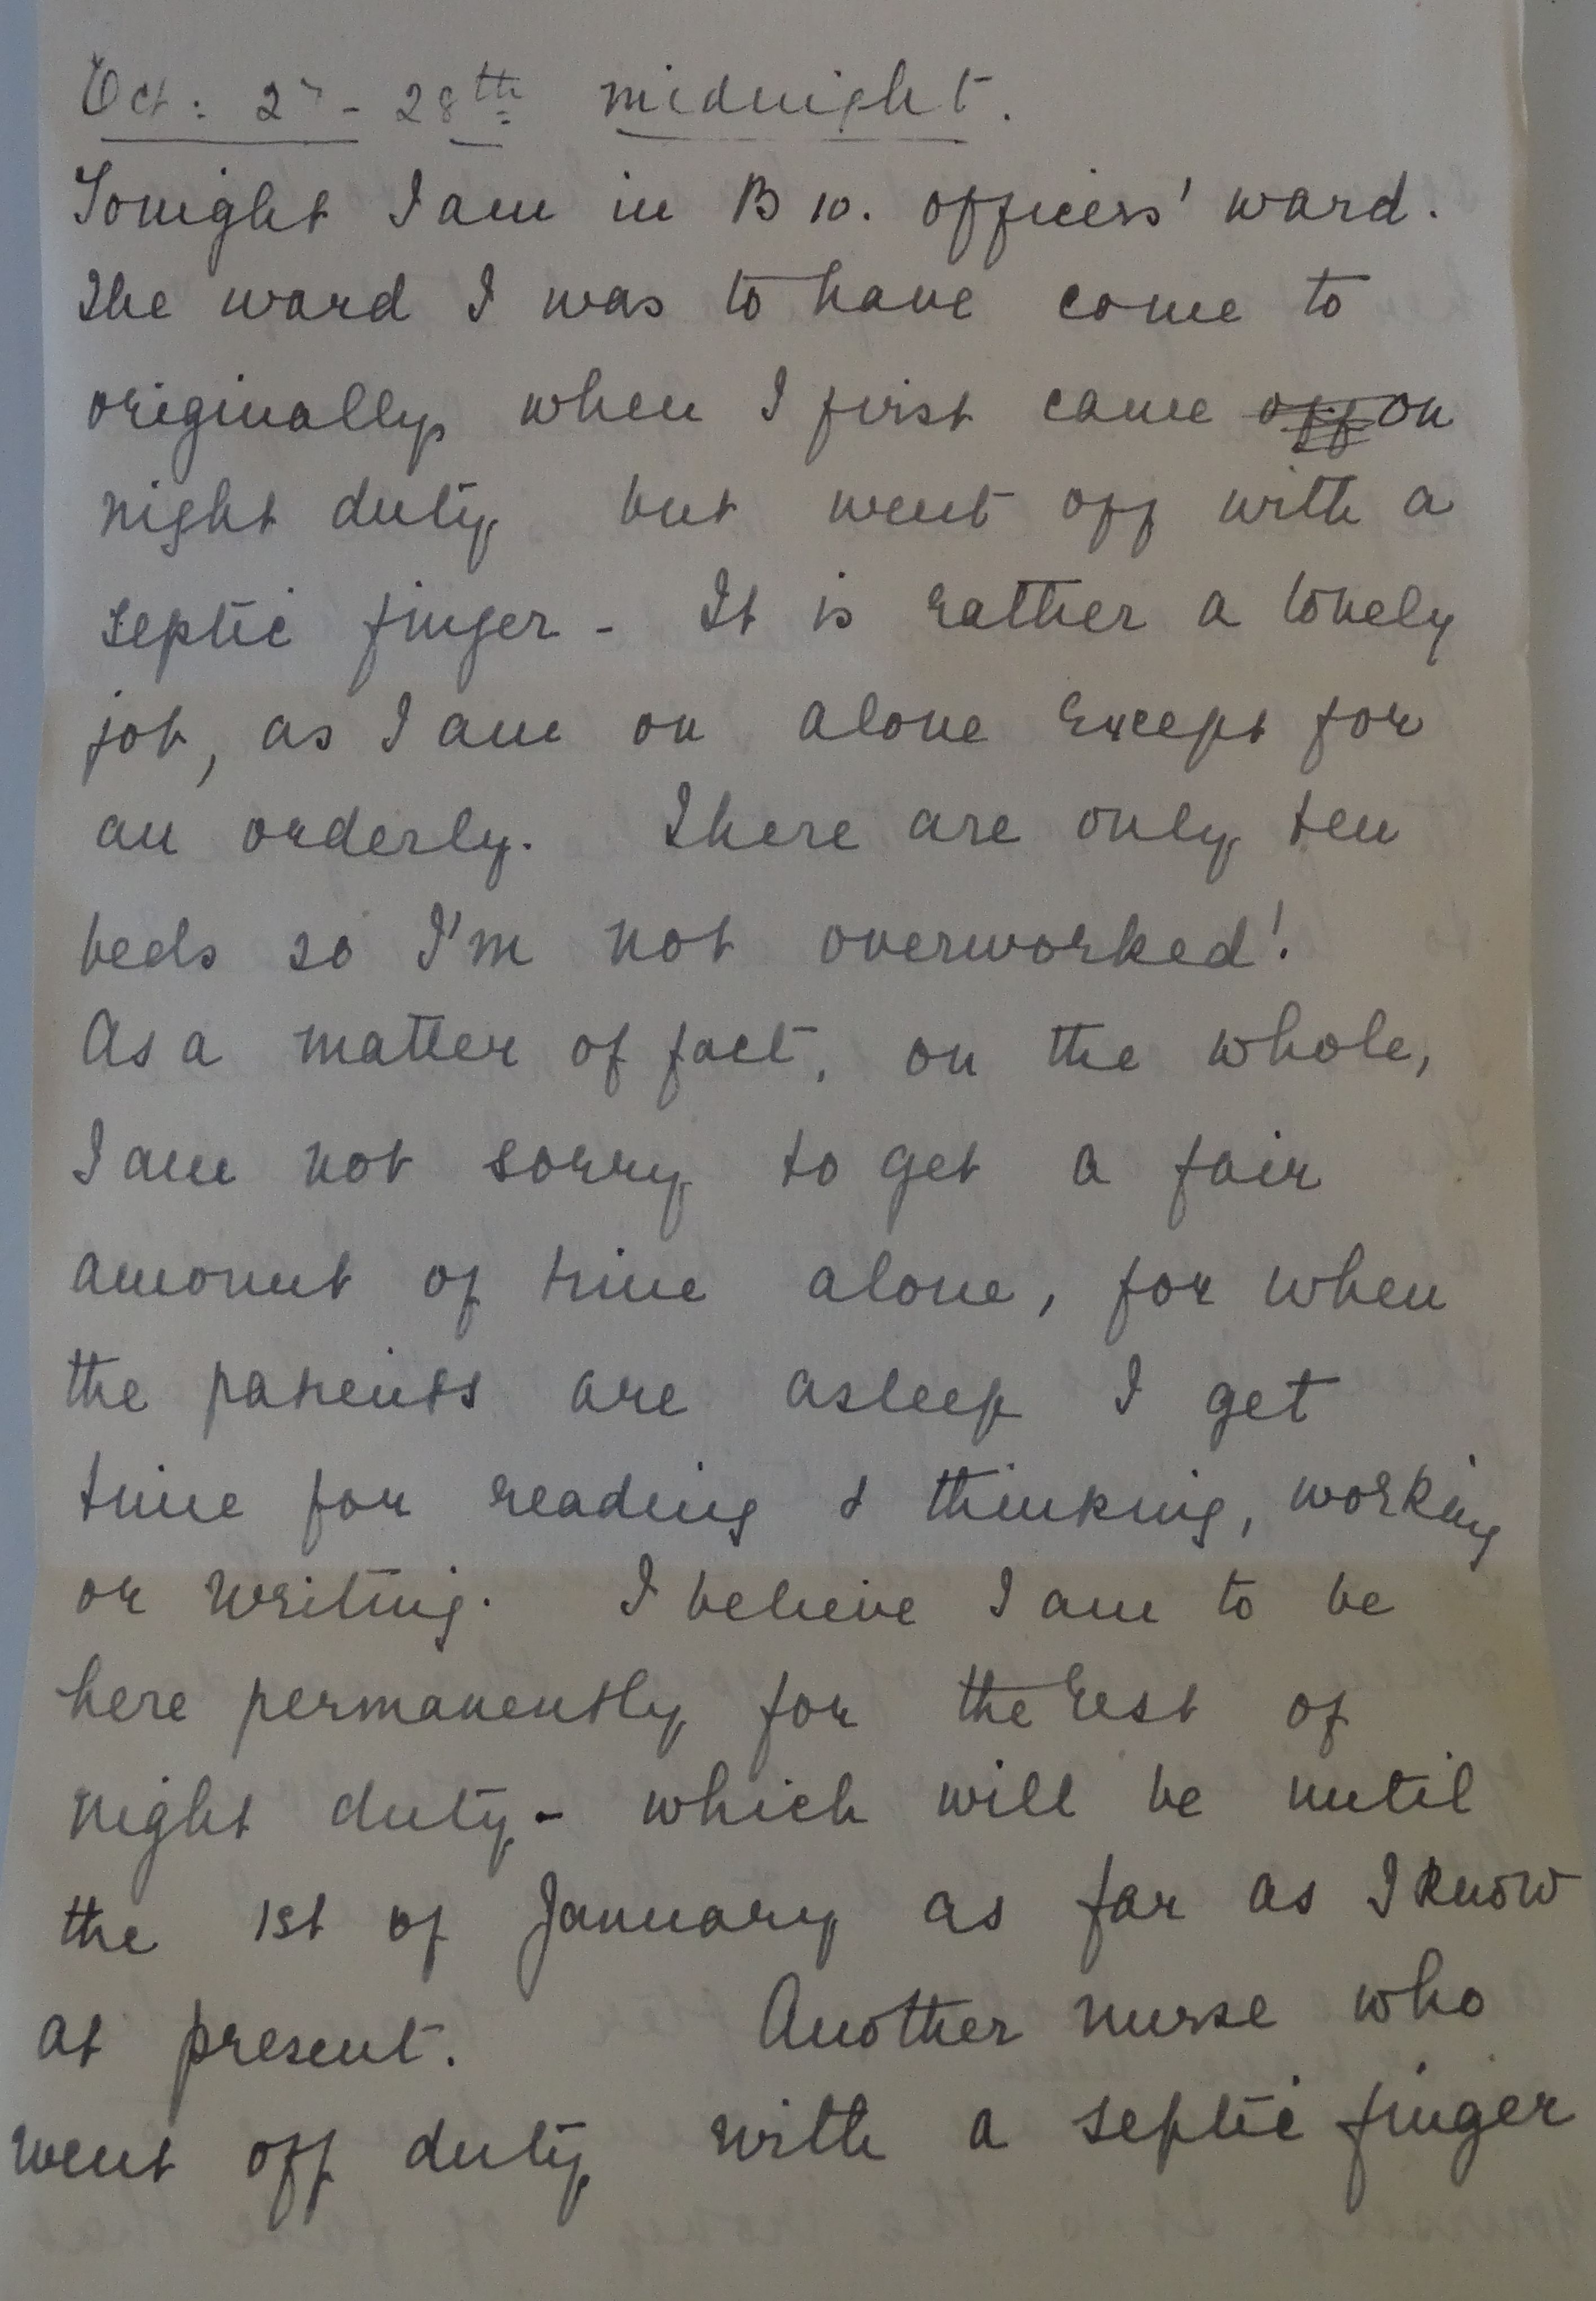 Oct: 27 - 28th midnight.
Tonight I am in B 10. officers' ward.
The ward I was to have come to
originally when I first came off on
night duty but went off with a
septic finger - It is rather a lonely
job, as I am on alone except for
an orderly. There are only ten
beds so I'm not overworked!
As a matter of fact, on the whole,
I am not sorry to get a fair
amount of time alone, for when
the patients are asleep I get
time for reading & thinking, working
or writing. I believe I am to be
here permanently for the rest of
night duty - which will be until
the 1st of January as far as I know
at present. Another nurse who
went off duty with a septic finger